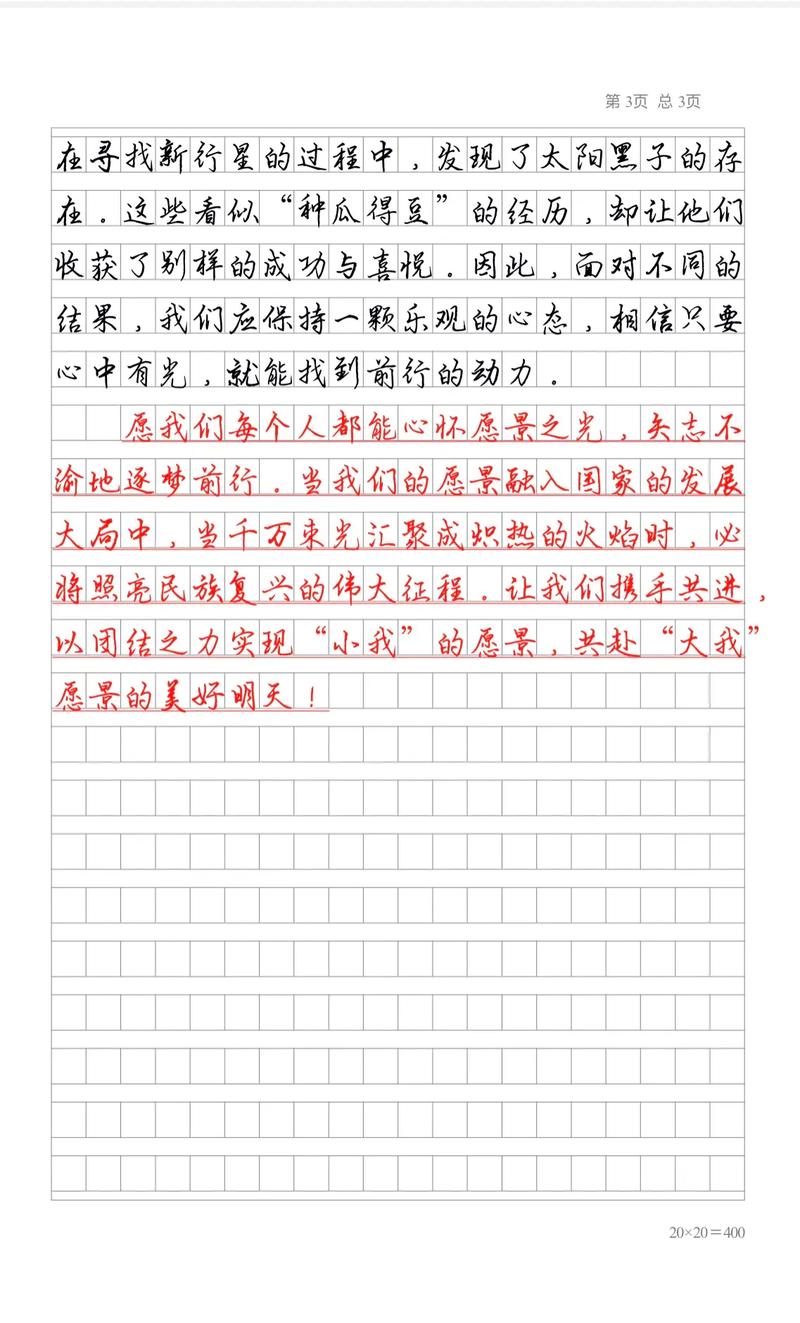 第 3页 总 3页
在寻找新行星的过程中，发现了太阳黑子的存
在。这些看似“种瓜得豆”的经历，却让他们
收获了别样的成功与喜悦。因此，面对不同的
结果，我们应保持一颗乐观的心态，相信只要
心中有光，就能找到前行的动力。
愿我们每个人都能心怀愿景之光，矢志不
渝地逐梦前行。当我们的愿景融入国家的发展
大局中，当千万束光汇聚成炽热的火焰时，必
将照亮民族复兴的伟大征程。让我们携手共进，
以团结之力实现“小我”的愿景，共赴“大我”
愿景的美好明天！
20×20＝400